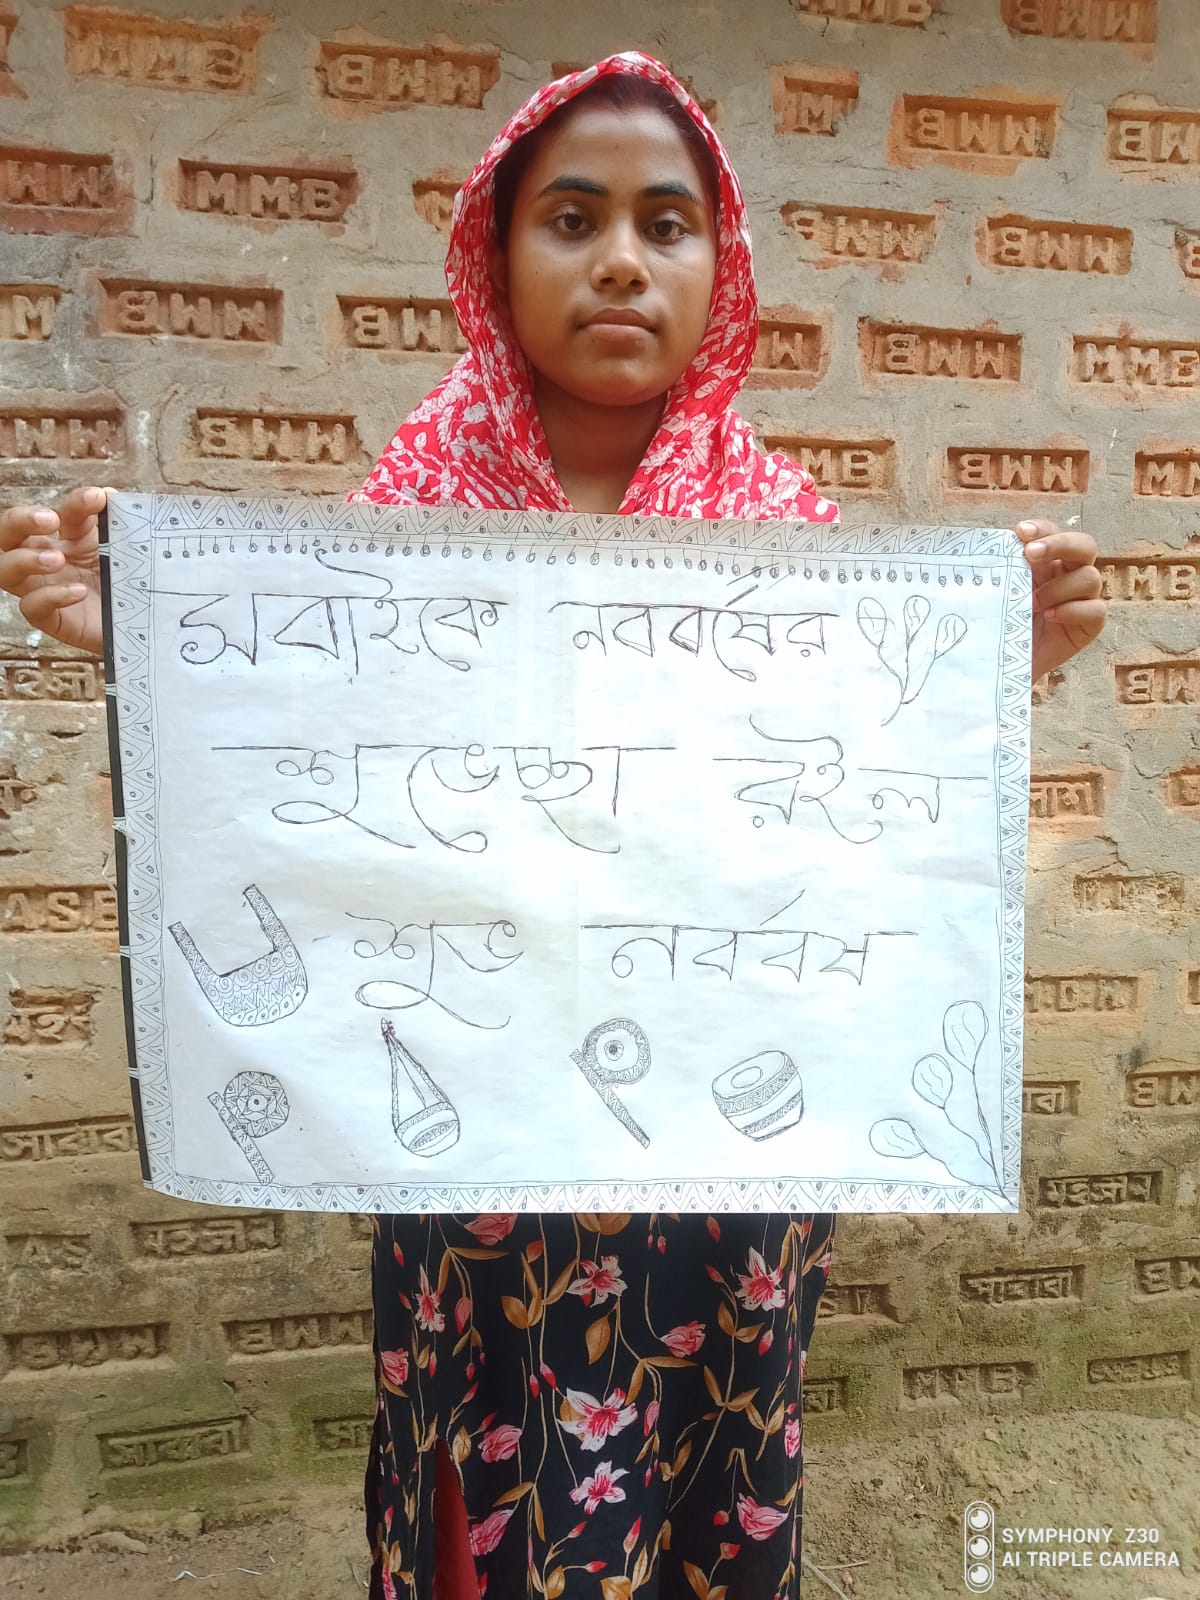 সবাইকে নববর্ষের
শুভেচ্ছা রইল
শুভ নববর্ষ
MMB
SYMPHONY Z30
AI TRIPLE CAMERA